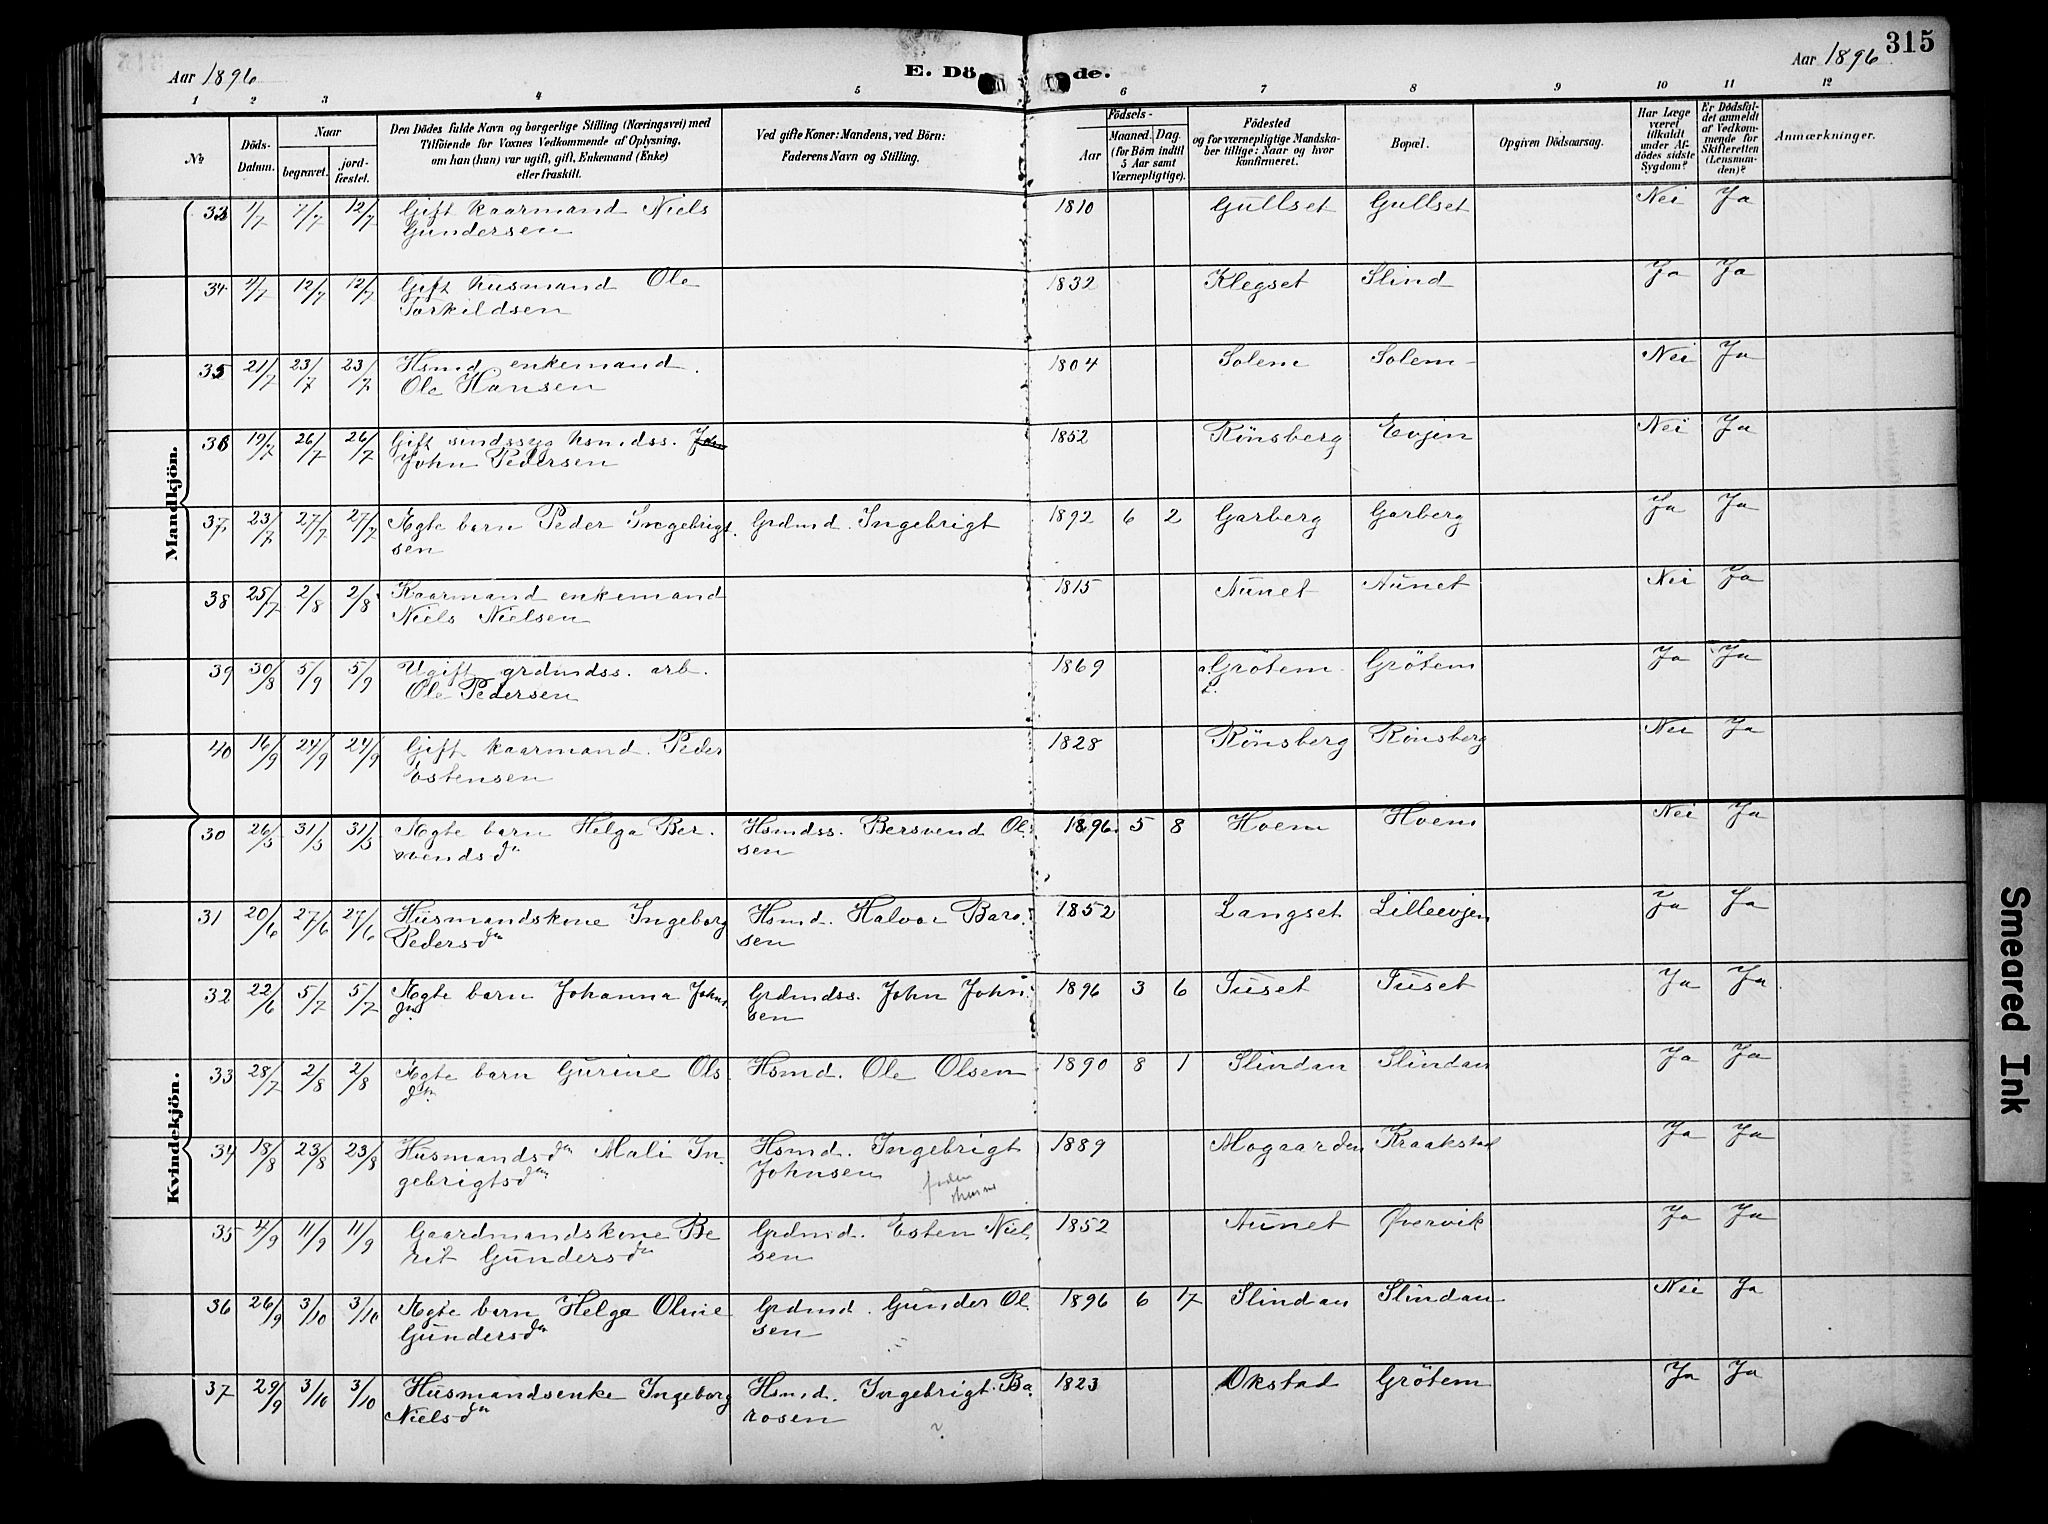 315
Aar 1896
E. Dö de.
Aar 1896
1 2 3 4 5 6 7 8 9 10 11 12
No
Döds-Datum.
Naar
begravet.
jord-fæstet.
Den Dödes fulde Navn og borgerlige Stilling (Næringsvei) med
Tilföiende for Voxnes Vedkommende af Oplysning,
om han (hun) var ugift, gift, Enkemand (Enke)
eller fraskilt.
Ved gifte Koner: Mandens, ved Börn:
Faderens Navn og Stilling.
Födsels-
Aar
Maaned. Dag.
(for Börn indtil
5 Aar samt
Værnepligtige).
Födested
og for værnepligtige Mandska-
ber tillige: Naar og hvor
konfirmeret.
Bopæl.
Opgiven Dödsaarsag.
Har Læge
været
tilkaldt
under Af-
dödes sidste
Sygdom?
Er Dödsfal-
det anmeldt
af Vedkom-
mende for
Skifteretten
(Lensman-
den)?
Anmærkninger.
Mandkjön.
33 1/7 7/7 12/7 Gift kaarmand Niels 1810 Gullset Gullset Nei Ja
Gundersen
34 4/7 12/7 12/7 Gift husmand Ole 1832 Klegset Slind Ja Ja
Torkildsen
35 21/7 23/7 23/7 Hsmd enkemand. 1804 Solem Solem Nei Ja
Ole Hansen
36 19/7 26/7 26/7 Gift sindssyg hsmdss. John 1852 Rönsberg Evjen Nei Ja
John Pedersen
37 23/7 27/7 27/7 Ægte barn Peder Ingebrigt- Grdmd. Ingebrigt 1892 6 2 Garberg Garberg Ja Ja
sen
38 25/7 2/8 2/8 Kaarmand enkemand 1815 Aunet Aunet Nei Ja
Niels Nielsen
39 30/8 5/9 5/9 Ugift grdmdss. arb. 1869 Grötem Grötem Ja Ja
Ole Pedersen
40 16/9 24/9 24/9 Gift kaarmand. Peder 1828 Rönsberg Rönsberg Nei Ja
Estensen
Kvindekjön.
30 26/5 31/5 31/5 Ægte barn Helga Ber- Hsmdss. Bersvend Ol- 1896 5 8 Hoem Hoem Nei Ja
svendsdn sen
31 20/6 27/6 27/6 Husmandskone Ingeborg Hsmd. Halvor Baro- 1852 Langset Lilleevjen Ja Ja
Pedersdn sen
32 22/6 5/7 5/7 Ægte barn Johanna Johns- Grdmdss. John John- 1896 3 6 Tuset Tuset Ja Ja
dn sen
33 28/7 2/8 2/8 Ægte barn Gurine Ols- Hsmd. Ole Olsen 1890 8 1 Slindan Slindan Ja Ja
dn.
34 18/8 23/8 23/8 Husmandsdn Mali In- Hsmd. Ingebrigt 1889 Mogaarden Kraakstad Ja Ja
gebrigtsdn Johnsen
35 4/9 11/9 11/9 Gaardmandskone Be- Grdmd. Esten Niel- 1852 Aunet Øvervik Ja Ja
rit Gundersdn sen
36 26/9 3/10 3/10 Ægte barn Helga Oline Grdmd. Gunder Ol- 1896 6 17 Slindan Slindan Nei Ja
Gundersdn sen
37 29/9 3/10 3/10 Husmandsenke Ingeborg Hsmd. Ingebrigt Ba- 1823 Okstad Grötem Ja Ja
Nielsdn rosen
?
Smeared Ink